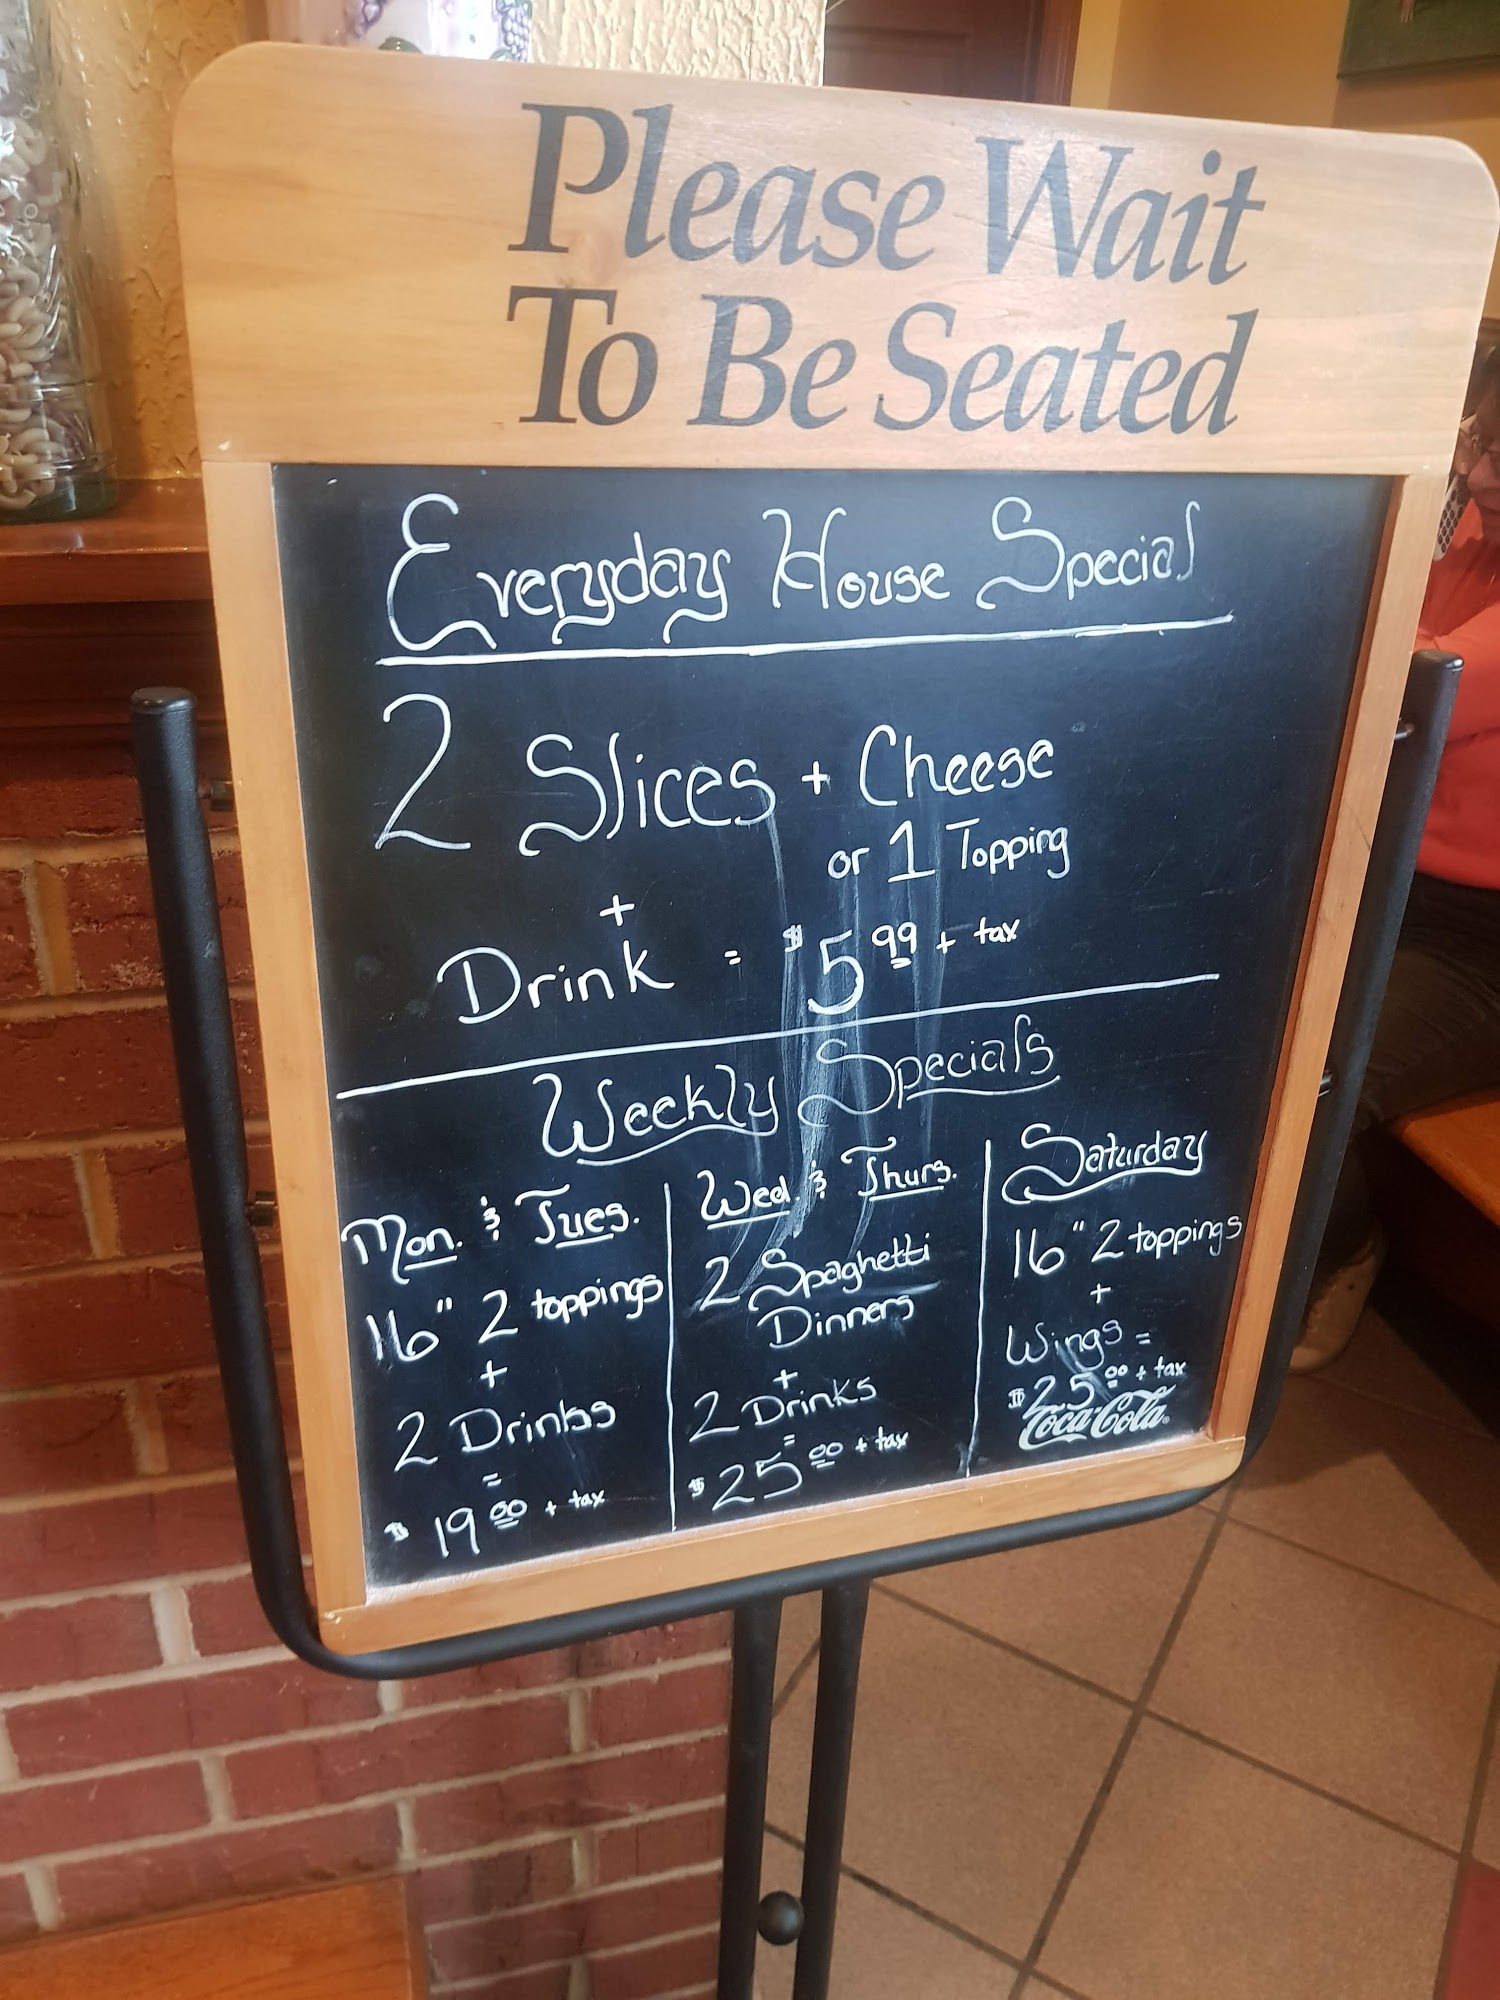 Please Wait
To Be Seated
Everyday House Special
2 Slices + Cheese
or 1 Topping
+
Drink = $5.99 + tax
Weekly Specials
Mon. & Tues.
16" 2 toppings
+
2 Drinks
=
$19.00 + tax
Wed. & Thurs.
2 Spaghetti
Dinners
+
2 Drinks
=
$25.00 + tax
Saturday
16" 2 toppings
+
Wings =
$25.00 + tax
Coca-Cola